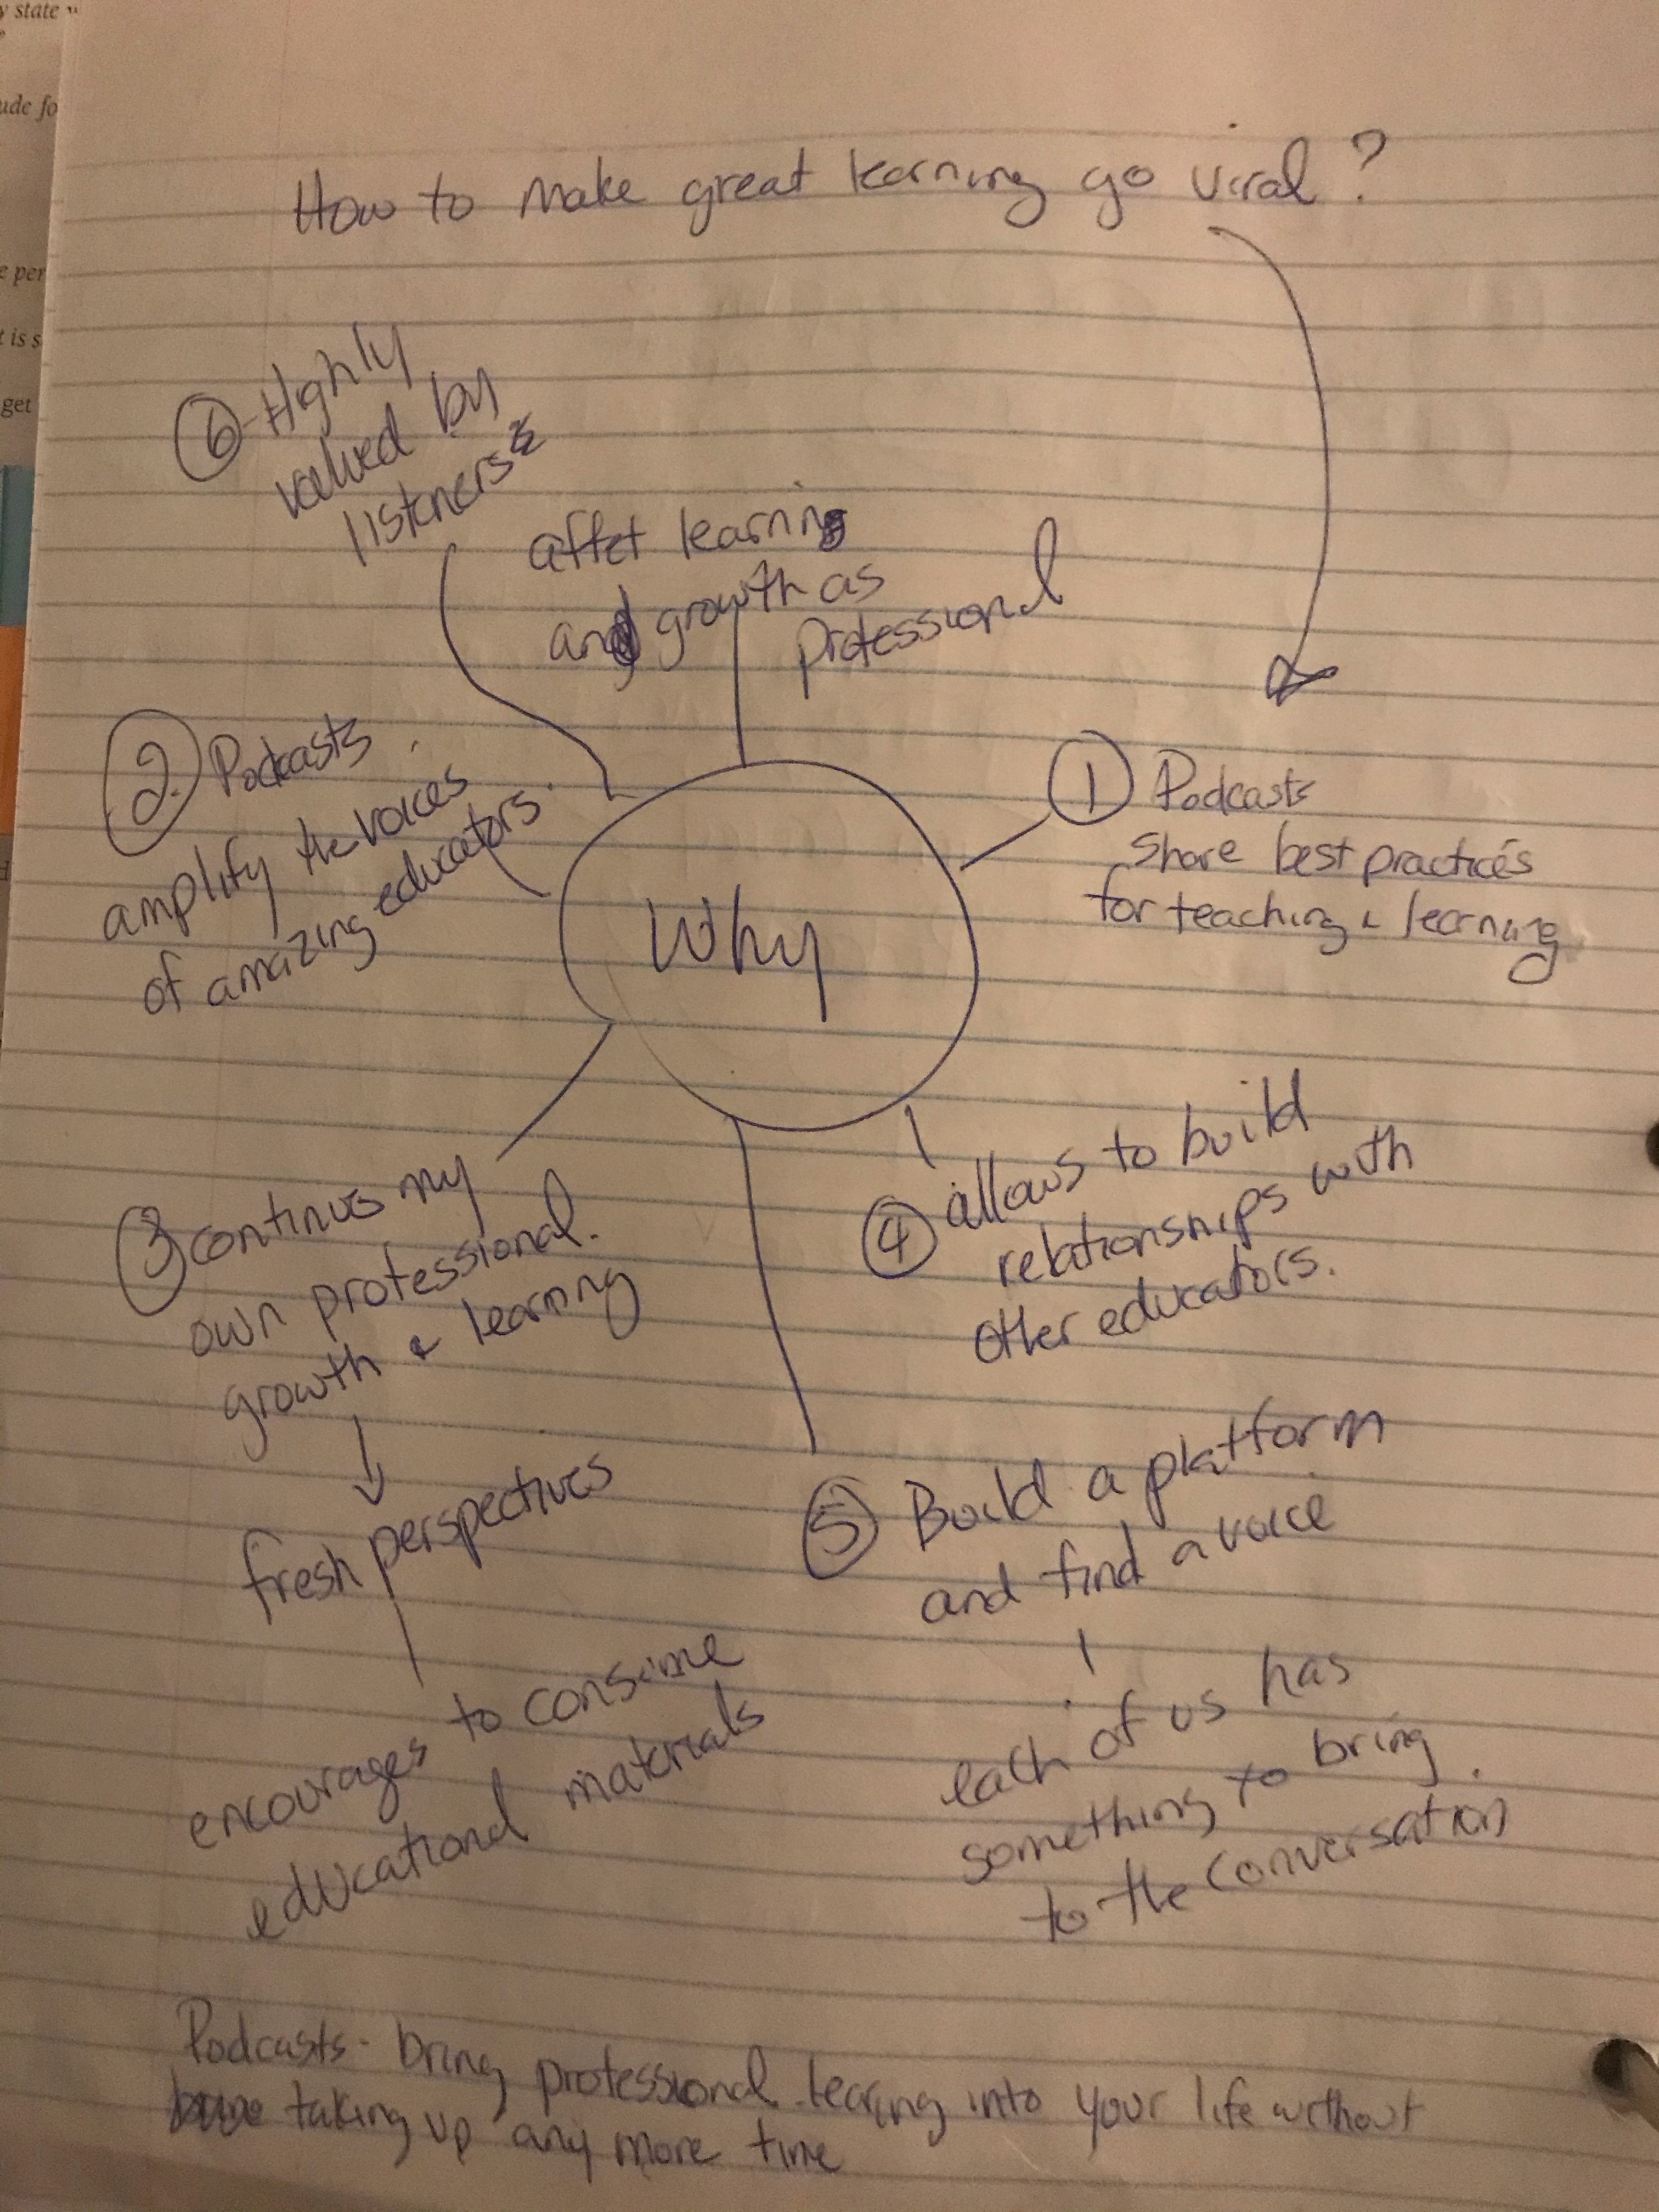 y state
ude fo
e per
t is s
get
How to make great learning go viral?
6 Highly
valued by
listeners
affet learning
and growth as
professional
1 Podcasts
share best practices
for teaching & learning
2. Podcasts
amplify the voices
of amazing educators.
Why
3 continues my
own professional.
growth & learning
fresh perspectives
encourages to consume
educational materials
4 allows to build
relationships with
other educators.
5 Build a platform
and find a voice
each of us has
something to bring
to the conversation
Podcasts - bring professional learing into your life without
taking up any more time